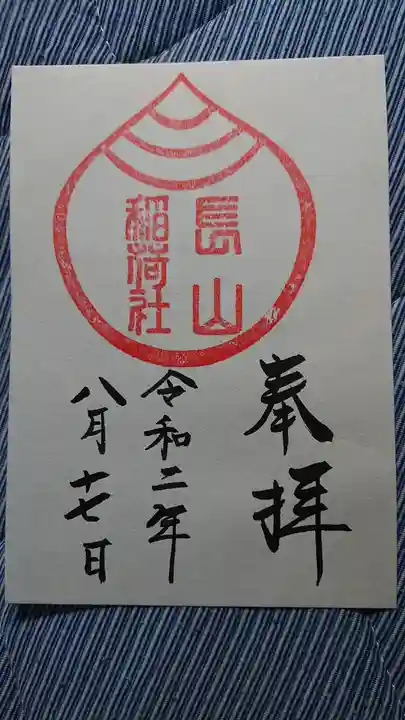 長山
稲荷社
奉拝
令和二年
八月十七日